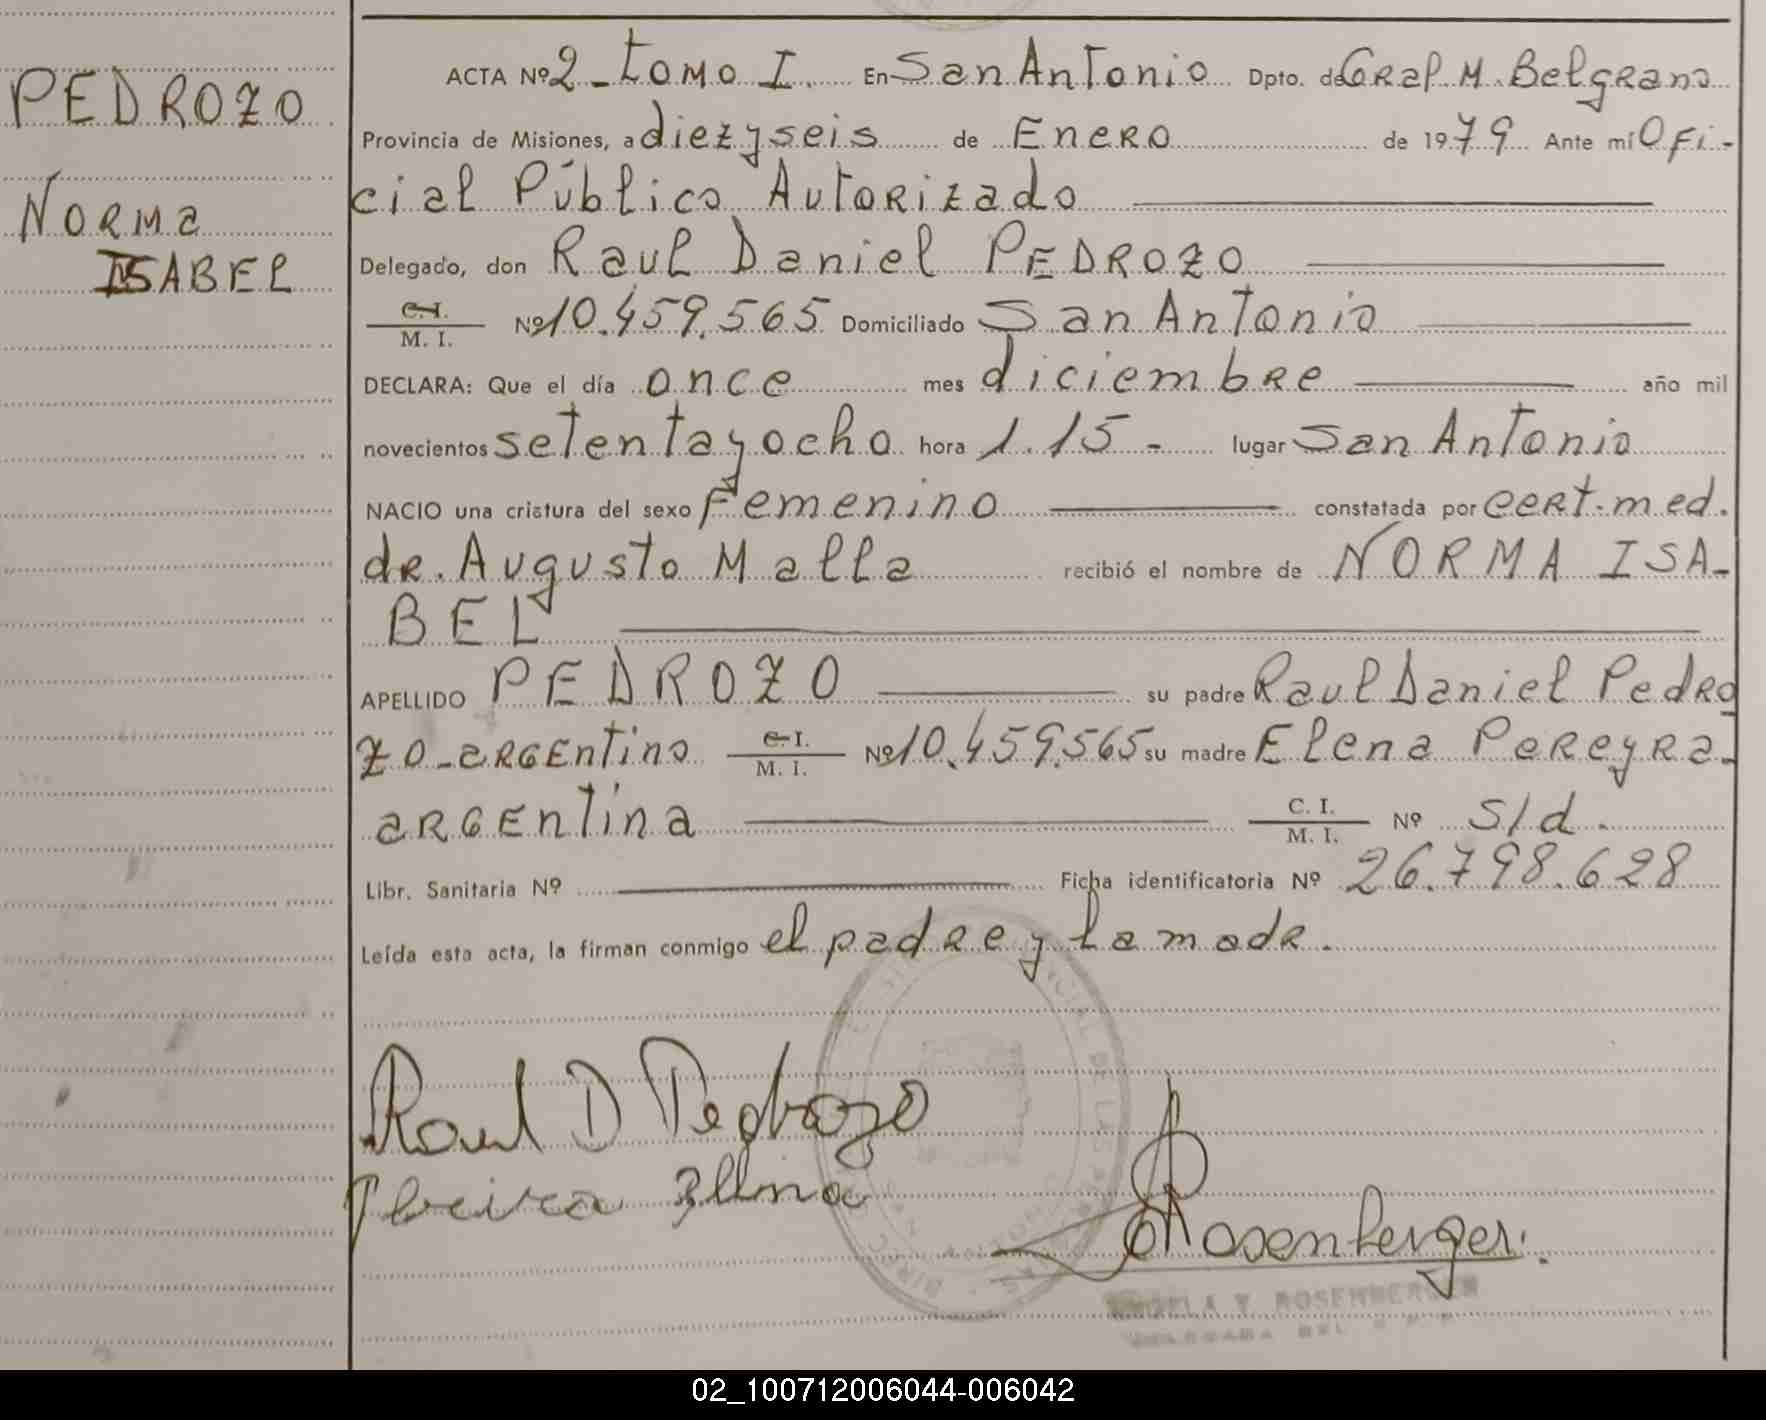 PEDROZO
NORMA
ISABEL
ACTA Nº 2 - tomo I. En San Antonio Dpto. de Gral M. Belgrano
Provincia de Misiones, a diez y seis de Enero de 1979 Ante mí Ofi-
cial Público Autorizado
Delegado, don Raul Daniel PEDROZO
C.I. / M. I. Nº 10.459.565 Domiciliado San Antonio
DECLARA: Que el día once mes diciembre año mil
novecientos setenta y ocho hora 1.15 - lugar San Antonio
NACIO una criatura del sexo Femenino constatada por cert. med.
dr. Augusto Malla recibió el nombre de NORMA ISA-
BEL
APELLIDO PEDROZO su padre Raul Daniel Pedro
zo - argentino C.I. / M. I. Nº 10.459.565 su madre Elena Pereyra -
argentina C. I. / M. I. Nº S/d.
Libr. Sanitaria Nº Ficha identificatoria Nº 26.798.628
Leída esta acta, la firman conmigo el padre y la madr.
Raul D Pedrozo
Rosenberger.
Y ROSENBERGER
02_100712006044-006042